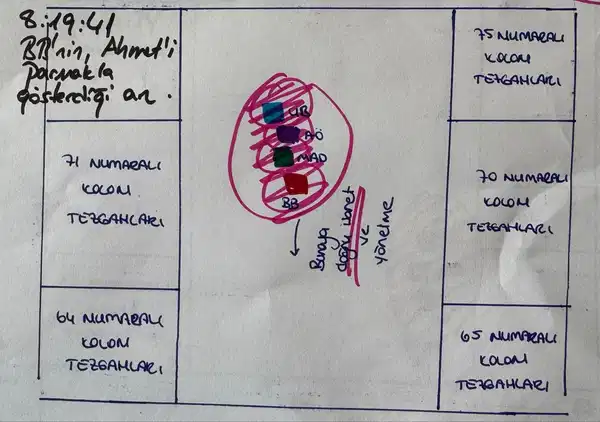 8:19:41
BB'nin, Ahmet'i
parmakla
gösterdiği an.
75 NUMARALI
KOLON
TEZGAHLARI
UB
AÖ
MAD
BB
71 NUMARALI
KOLON
TEZGAHLARI
70 NUMARALI
KOLON
TEZGAHLARI
Buraya
doğru işaret
ve
yönelme
64 NUMARALI
KOLON
TEZGAHLARI
65 NUMARALI
KOLON
TEZGAHLARI